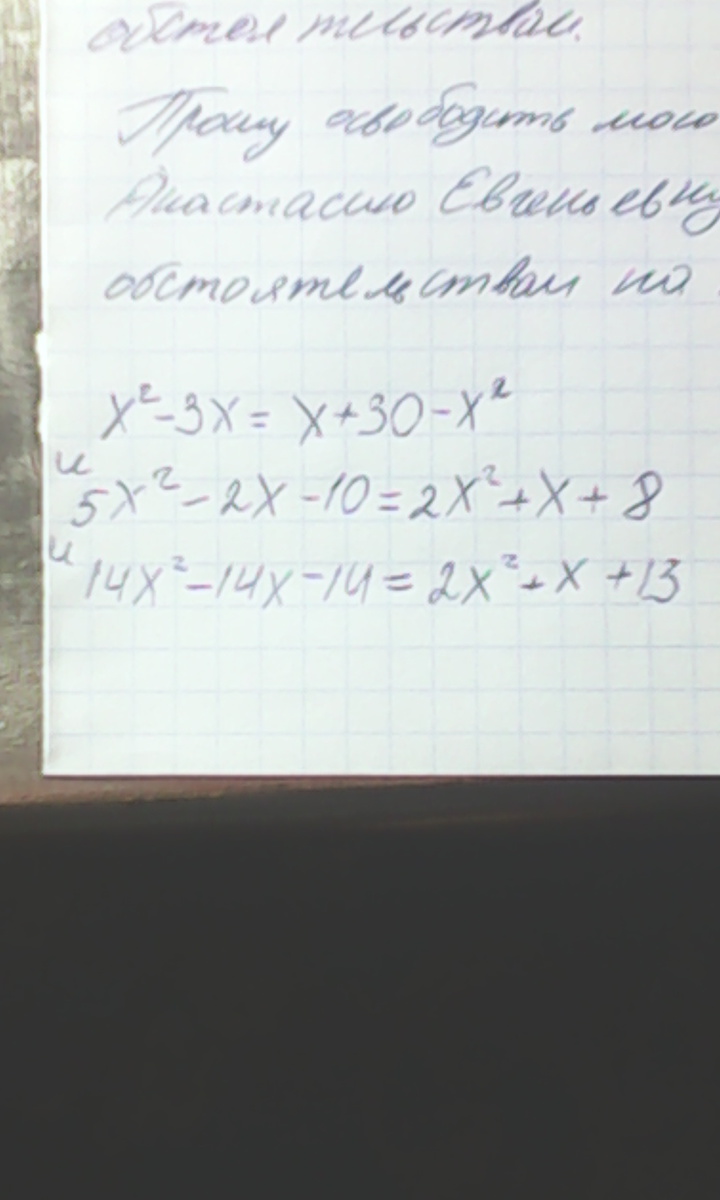 обстоятельствам.
Прошу освободить мою
Анастасию Евгеньевну
обстоятельствам на
x² - 3x = x + 30 - x²
и
5x² - 2x - 10 = 2x² + x + 8
и
14x² - 14x - 14 = 2x² + x + 13